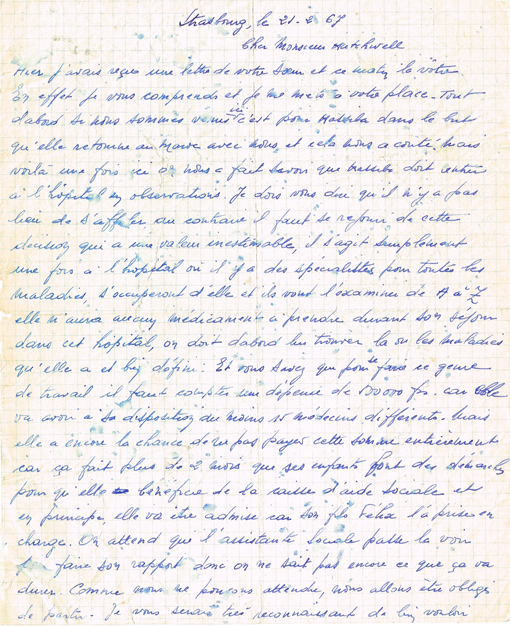 Strasbourg, le 21-2 67
Cher Monsieur Hatchwell
Hier j'avais reçue une lettre de votre Sœur et ce matin la vôtre
En effet je vous comprends et je me mets à votre place. Tout
d'abord si nous sommes venus ici c'est pour Messika dans le but
qu'elle retourne au Maroc avec nous, et cela nous a conté, mais
voilà une fois ici on nous a fait savoir que Messika doit entrer
à l'hôpital en observations. Je dois vous dire qu'il n'y a pas
lieu de s'affoler au contraire il faut se rejouir de cette
décision qui a une valeur inestimable, il s'agit simplement
une fois à l'hôpital où il y a des spécialistes pour toutes les
maladies, s'occuperont d'elle et ils vont l'examiner de A à Z
elle n'aura aucun médicament à prendre durant son séjour
dans cet hôpital, on doit d'abord lui trouver la ou les maladies
qu'elle a et bien défini. Et vous savez que pour faire ce genre
de travail il faut compter une dépense de frs. car elle
va avoir à sa disposition du moins 15 médecins différents. Mais
elle a encore la chance de ne pas payer cette somme entièrement
car ça fait plus de 2 mois que ses enfants font des démarches
pour qu'elle bénéficie de la caisse d'aide sociale et
en principe, elle va être admise car son fils Félix l'a prise en
charge. On attend que l'assistante sociale passe la voir
faire son rapport donc on ne sait pas encore ce que ça va
durer. Comme nous ne pouvons attendre, nous allons être obligés
de partir. Je vous serais très reconnaissant de bien vouloir